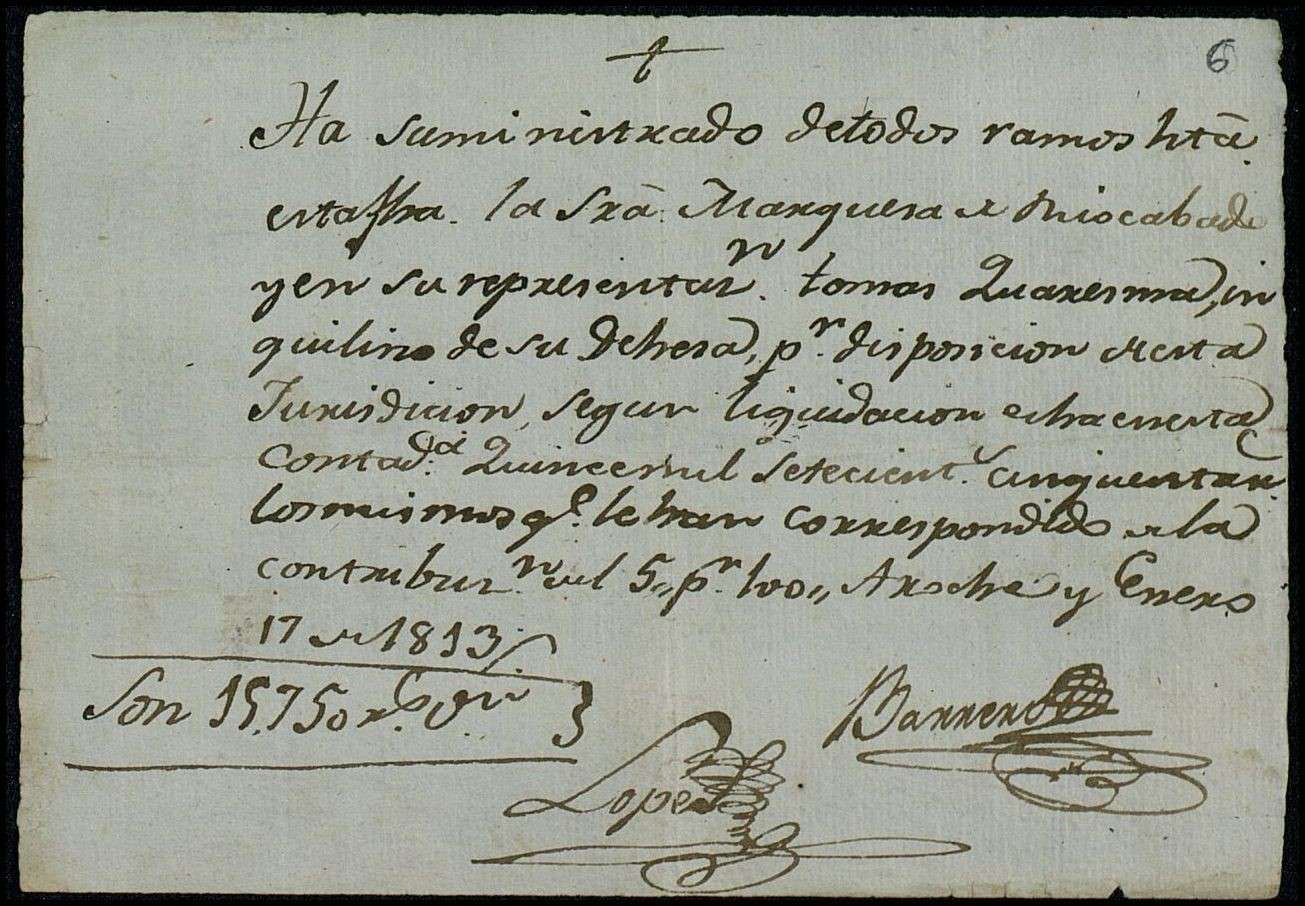 6
Ha suministrado de todos ramos htã.
esta fha. la Srã. Marquesa de Riocabado
y en su representaz.n tomas Quaresma, in
quilino de su Dehesa, p.r disposicion de esta
Jurisdicion, segun liquidacion echa en esta
Contad.a Quince mil setecient.s cinquenta rr.
los mismos q.e le han correspondido de la
contribuz.n del 5,, p.r 100,, Aroche y Enero
17 de 1813,
Son 15,750 r.s v.n
Barrero
Lopez